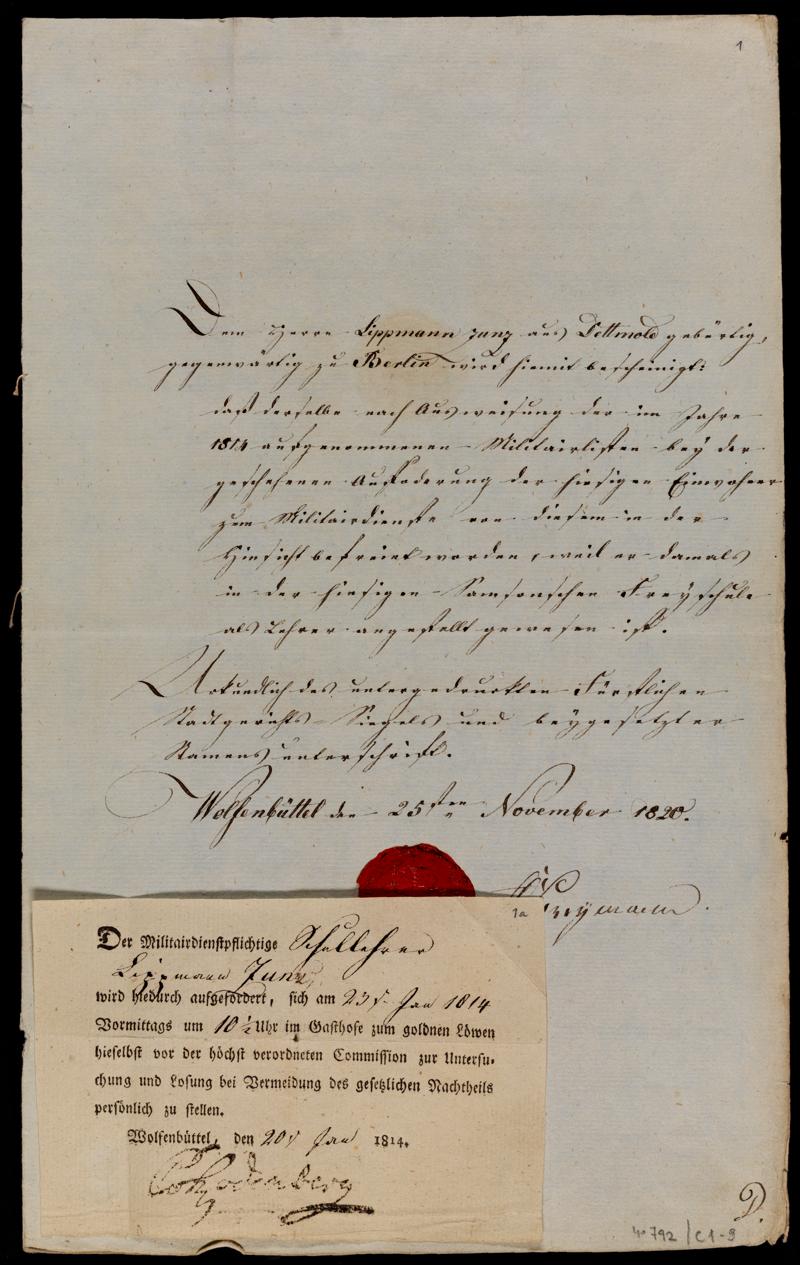 1
Dem Herrn Lippmann Zunz aus Dettmold gebürtig,
gegenwärtig zu Berlin wird hiemit bescheinigt:
daß derselbe nach Ausweisung der im Jahre
1814 aufgenommenen Militairlisten bey der
geschehenen Aufforderung der hiesigen Einwohner
zum Militairdienste von diesem in der
Hinsicht befreiet worden, weil er damals
in der hiesigen Samsonschen Freyschule
als Lehrer angestellt gewesen ist.
Urkundlich des untergedruckten Fürstlichen
Stadtgerichts Siegels und beygesetzter
Namensunterschrift.
Wolfenbüttel den 25sten November 1820.
1a
Der Militairdienstpflichtige Schullehrer
Lippmann Zunz
wird hiedurch aufgefordert, sich am 23s Jan 1814
Vormittags um 10 1/2 Uhr im Gasthofe zum goldnen Löwen
hieselbst vor der höchst verordneten Commission zur Untersu-
chung und Losung bei Vermeidung des gesetzlichen Nachtheils
persönlich zu stellen.
Wolfenbüttel, den 20s Jan 1814.
D.
4° 792/C1-9